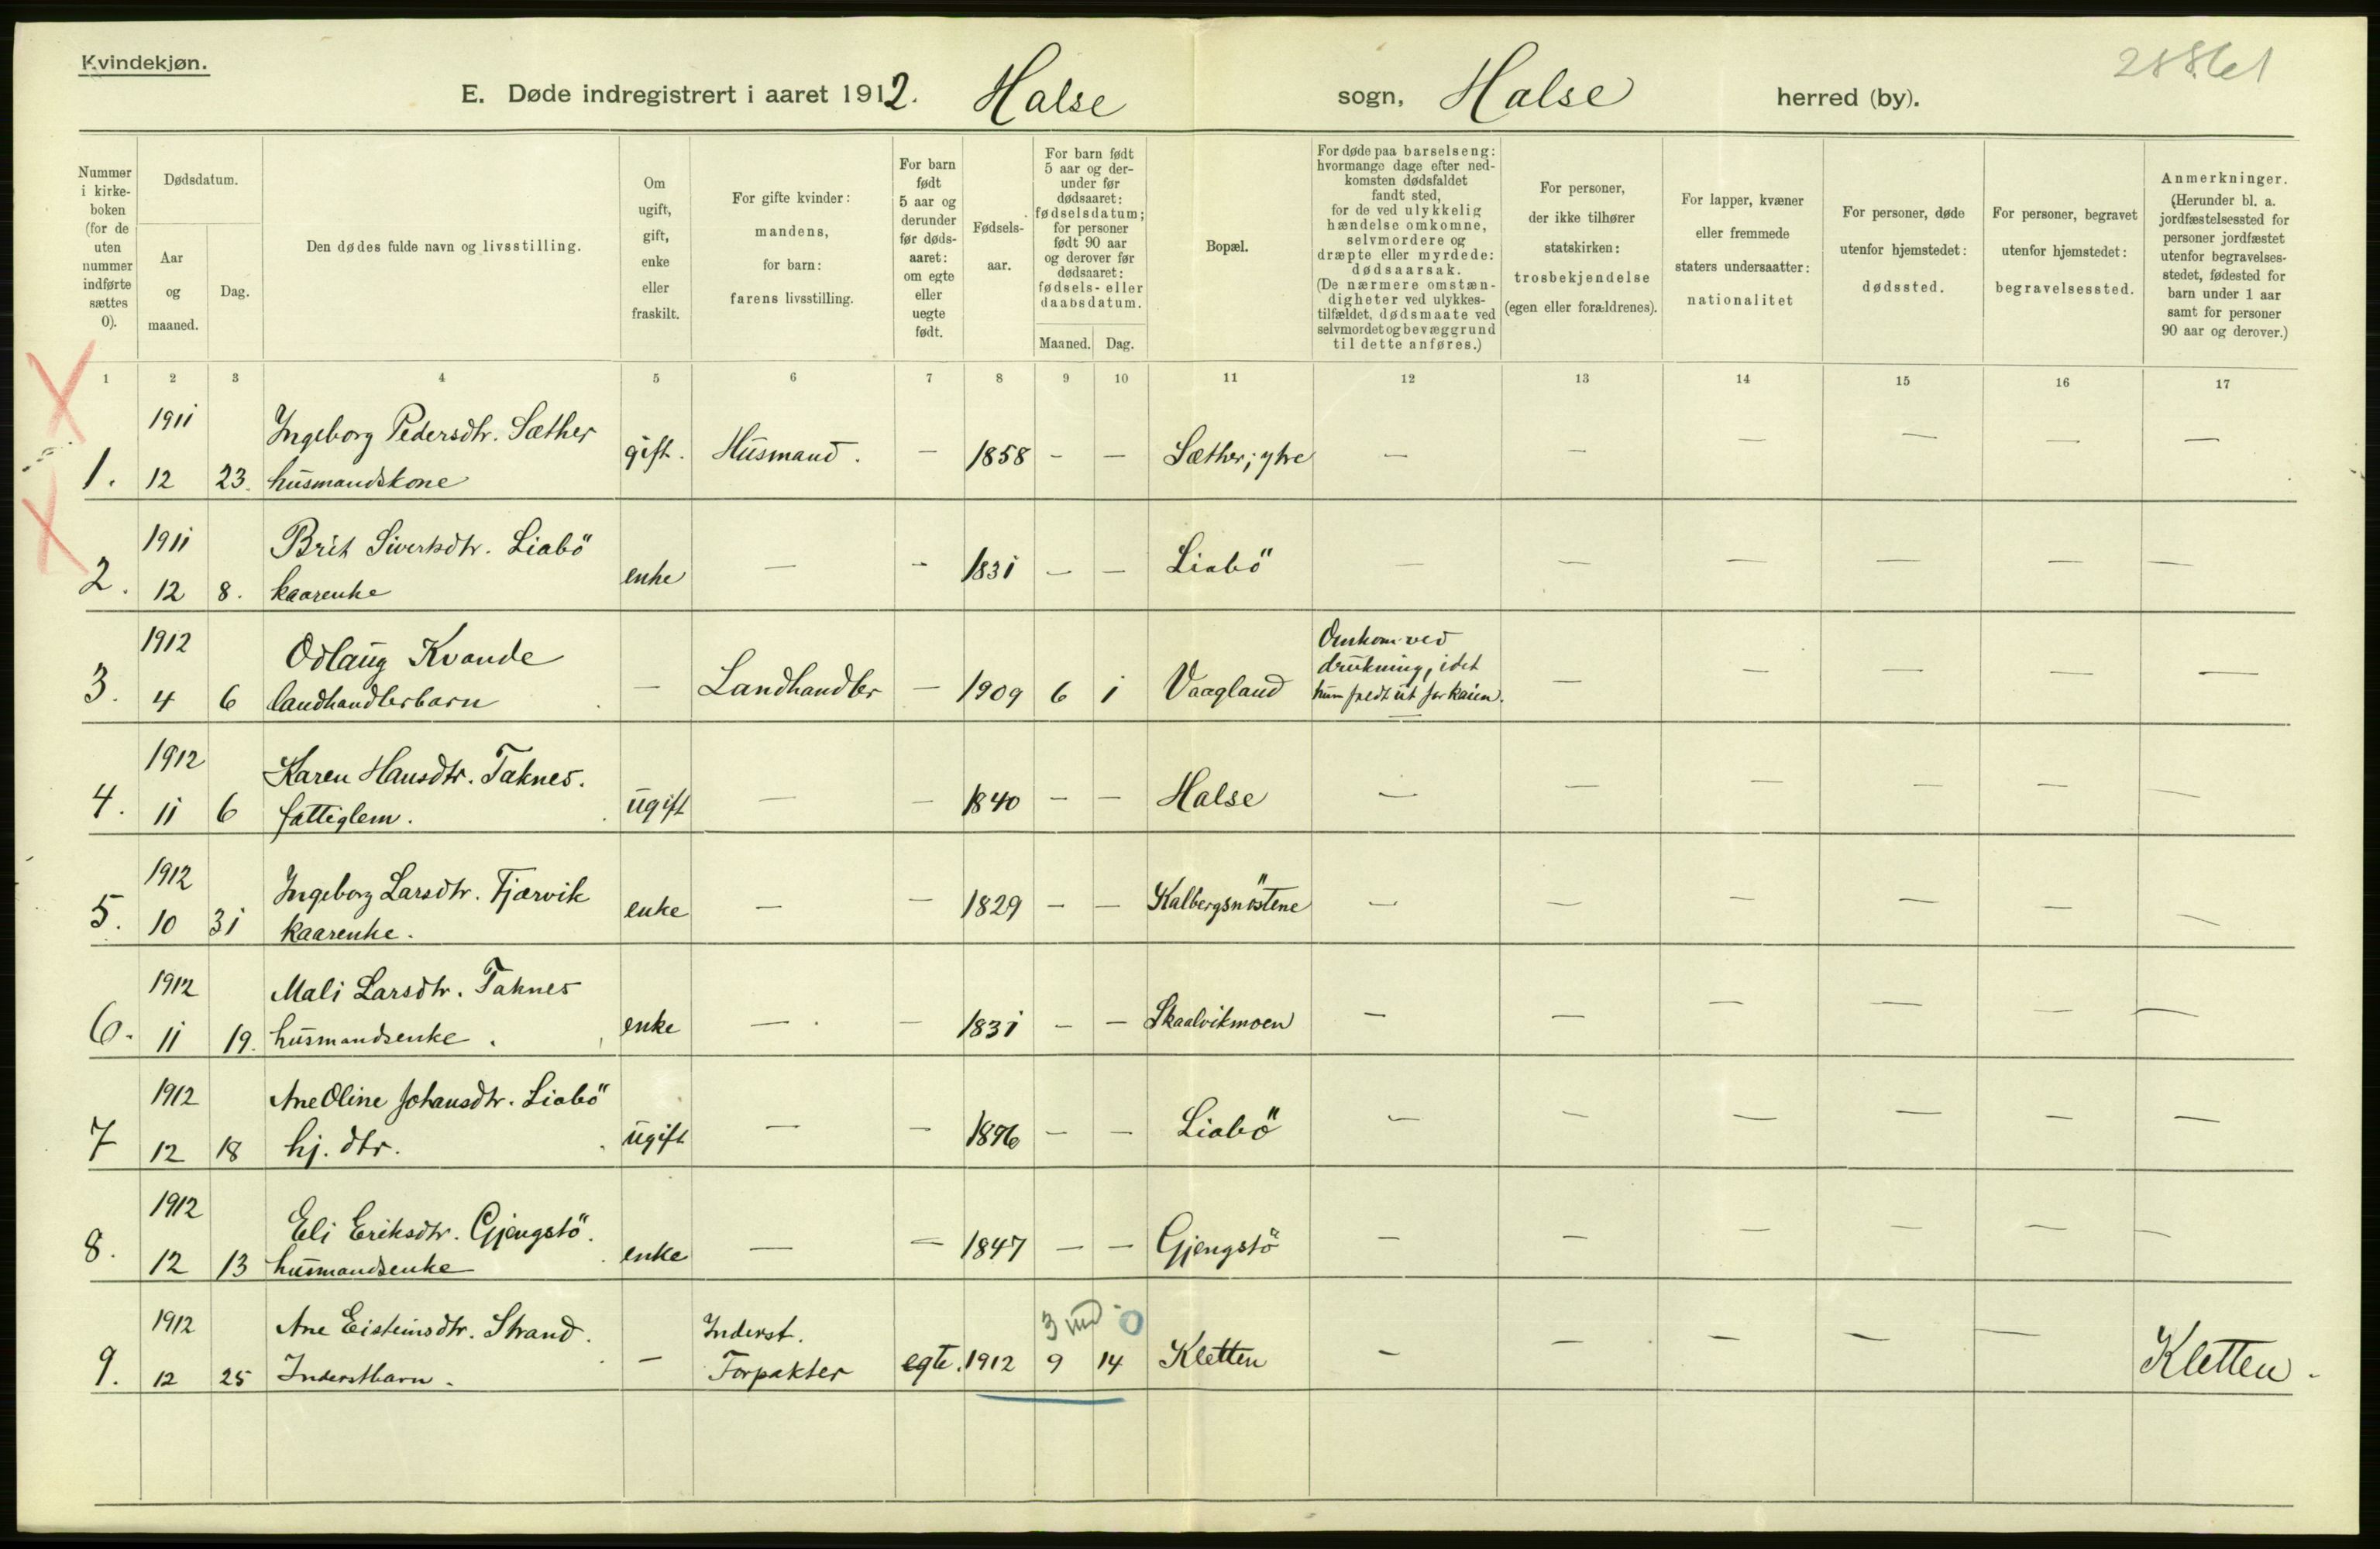 Kvindekjøn.
28861
E. Døde indregistrert i aaret 1912. Halse sogn, Halse herred (by).
Nummer i kirke-boken (for de uten nummer indførte sættes 0).
Dødsdatum.
Aar og maaned.
Dag.
Den dødes fulde navn og livsstilling.
Om ugift, gift, enke eller fraskilt.
For gifte kvinder: mandens, for barn: farens livsstilling.
For barn født 5 aar og derunder før døds-aaret: om egte eller uegte født.
Fødsels-aar.
For barn født 5 aar og der-under før dødsaaret: fødselsdatum; for personer født 90 aar og derover før dødsaaret: fødsels- eller daabsdatum.
Maaned. Dag.
Bopæl.
For døde paa barselseng: hvormange dage efter ned-komsten dødsfaldet fandt sted, for de ved ulykkelig hændelse omkomne, selvmordere og dræpte eller myrdede: dødsaarsak. (De nærmere omstæn-digheter ved ulykkes-tilfældet, dødsmaate ved selvmordet og bevæggrund til dette anføres.)
For personer, der ikke tilhører statskirken: trosbekjendelse (egen eller forældrenes).
For lapper, kvæner eller fremmede staters undersaatter: nationalitet
For personer, døde utenfor hjemstedet: dødssted.
For personer, begravet utenfor hjemstedet: begravelsessted.
Anmerkninger. (Herunder bl. a. jordfæstelsessted for personer jordfæstet utenfor begravelses-stedet, fødested for barn under 1 aar samt for personer 90 aar og derover.)
1 2 3 4 5 6 7 8 9 10 11 12 13 14 15 16 17
1911 Ingeborg Pedersdtr. Sæther
1. 12 23. husmandskone gift. Husmand. — 1858 - — Sæther, ytre — — — — — —
1911 Brit Sivertsdtr. Liabö
2. 12 8. kaarenke enke — - 1831 — — Liabö — — — — — —
1912 Odlaug Kvande Omkom ved
drukning, idet
3. 4 6 landhandlerbarn — Landhandler — 1909 6 1 Vaagland hun faldt ut for kaien. — — — — —
1912 Karen Hansdtr. Taknes.
4. 11 6 fattiglem. ugift — — 1840 — — Halse — — — — — —
1912 Ingeborg Larsdtr. Fjærvik
5. 10 31 kaarenke. enke — — 1829 — — Kalbergsnöstene — — — — — —
1912 Mali Larsdtr. Taknes
6. 11 19. husmandsenke. enke — — 1831 — — Skaalvikmoen — — — — — —
1912 Ane Oline Johansdtr. Liabö
7 12 18 hj. dtr. ugift — — 1896 — — Liabö — — — — — —
1912 Eli Eriksdtr. Gjengstö.
8. 12 13 husmandsenke enke — — 1847 — — Gjengstö — — — — — —
1912 Ane Eisteinsdtr. Strand. Inderst. 3 md 0
9. 12 25 Inderstbarn. — Forpakter egte. 1912 9 14 Kletten — — — — — Kletten.